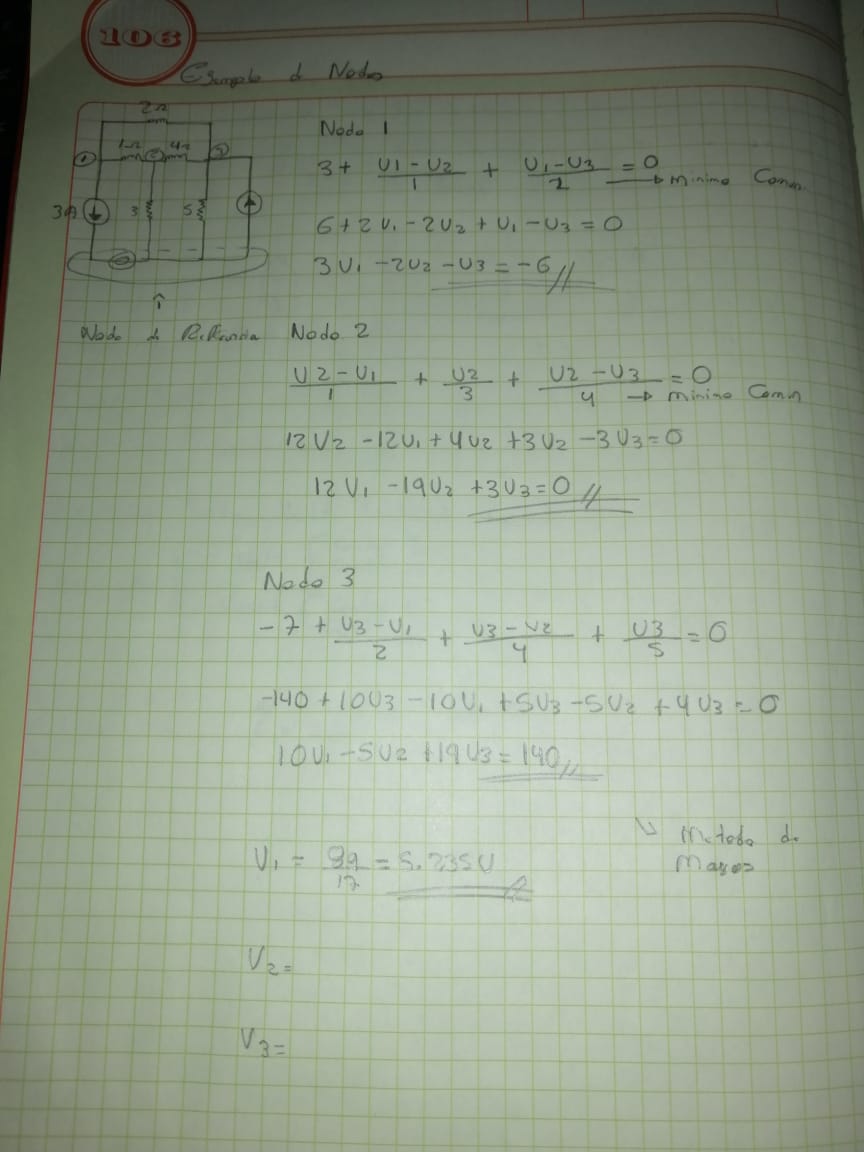 103
Ejemplo d Nodos
2Ω
1Ω 4Ω
1 2 3
3A 3 5
Nodo d Referencia
Nodo 1
3 + (U1 - U2)/1 + (U1 - U3)/2 = 0 → minimo Comun
6 + 2U1 - 2U2 + U1 - U3 = 0
3U1 - 2U2 - U3 = -6 //
Nodo 2
(U2 - U1)/1 + U2/3 + (U2 - U3)/4 = 0 → minimo Comun
12U2 - 12U1 + 4U2 + 3U2 - 3U3 = 0
12U1 - 19U2 + 3U3 = 0 //
Nodo 3
-7 + (U3 - U1)/2 + (U3 - U2)/4 + U3/5 = 0
-140 + 10U3 - 10U1 + 5U3 - 5U2 + 4U3 = 0
10U1 - 5U2 + 19U3 = 140 //
Metodo de
V1 = 89/17 = 5.235V
V2 =
V3 =